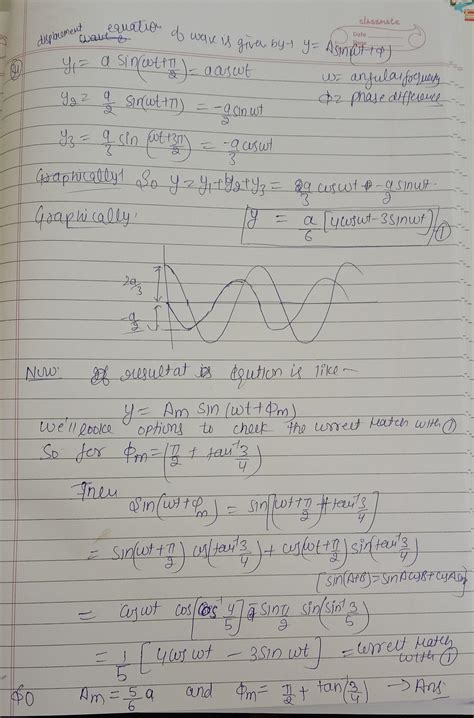 classmate
Date
displacement equation of wave is given by :- y = A sin(ωt + ϕ)
y₁ = a sin(ωt + π/2) = a cos ωt
ω = angular frequency
y₂ = a/2 sin(ωt + π) = -a/2 sin ωt
ϕ = phase difference
y₃ = a/3 sin(ωt + 3π/2) = -a/3 cos ωt
Graphically! So y = y₁ + y₂ + y₃ = 2a/3 cos ωt - a/2 sin ωt
Graphically:
y = a/6 [4 cos ωt - 3 sin ωt] ①
2a/3
-a/2
Now: resultat is eqution is like -
y = Am sin (ωt + ϕm)
We'll looke options to check the correct Match with ①
So for ϕm = (π/2 + tan⁻¹ 3/4)
Then
sin(ωt + ϕm) = sin[(ωt + π/2) + tan⁻¹ 3/4]
= sin(ωt + π/2) cos(tan⁻¹ 3/4) + cos(ωt + π/2) sin(tan⁻¹ 3/4)
[sin(A+B) = sinA cosB + cosA sinB]
= cos ωt cos[cos⁻¹ 4/5] sin(sin⁻¹ 3/5)
= 1/5 [4 cos ωt - 3 sin ωt] = correct Match with ①
So Am = 5/6 a and ϕm = π/2 + tan⁻¹(3/4) → Ans